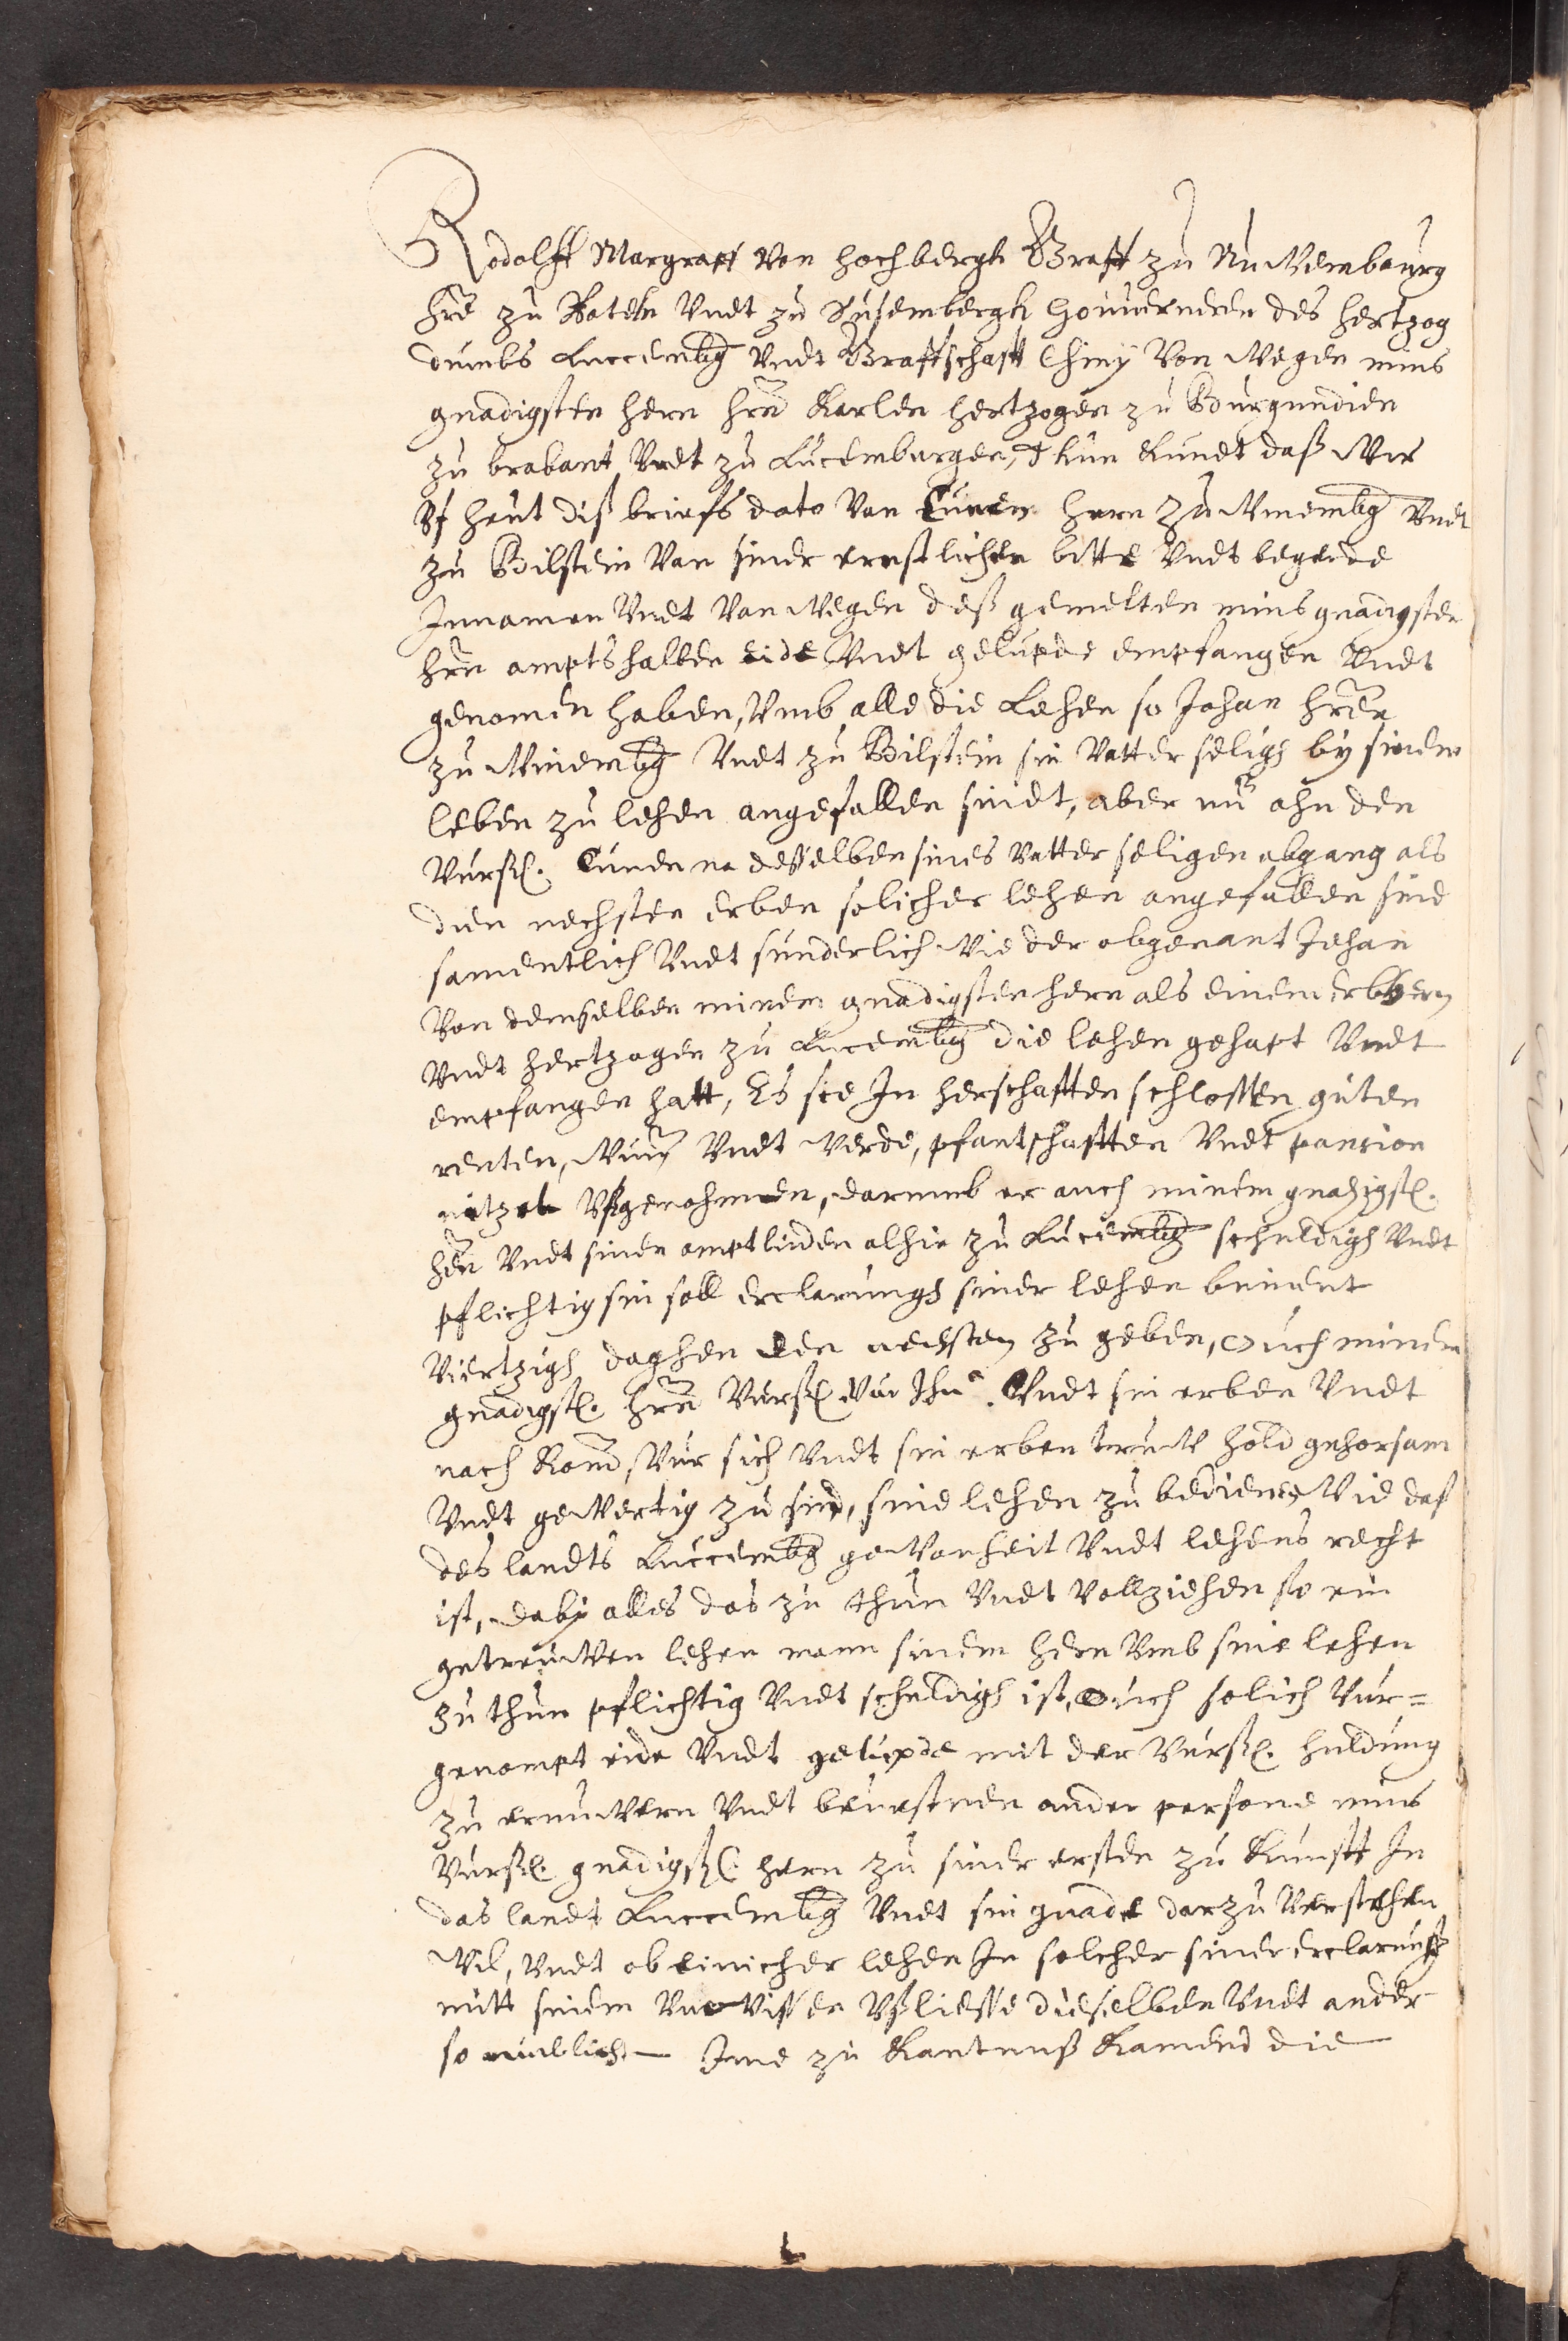 Rodolff Margraff Von Hochbergh Graff zu Nuwembourg
Hre zu Roteln Vndt zu Susembergh Gouuerneren des Hertzog
dumbs Luccembg Vndt Graffschafft Chiny Von wegen mins
gnadigsten hern hrn Karlen Hertzogen zu Burgundien
zu brabant Vndt zu Lucemburgen, Thun Kundt daß Wir
Vf heut diß briefs dato Van Cunen hern zu Winembg Vndt
zu Bilstein Van siner ernstlichen bitte Vndt begerde
Innamen Vndt Van wegen deß gemelten mins gnadigsten
hrn ampts halben eide Vndt gelupde empfangen Vndt
genomen haben, Vmb alle die Lehen so Johan hren
zu Winembg Vndt zu Bilstein sin Vatter seligh by sinem
leben zu lehen angefallen sindt, aber nu ahn den
Vursch. Cunen na desselben sines vatter seligen abgang als
dien nechsten erben solicher lehen angefallen sind
samentlich Vndt sunderlich Wie der obgenant Johan
Von demselben minem gnadigsten hern als einem erbhern
Vndt hertzogen zu Lucembg die lehen gehapt Vndt
empfangen hatt, Es sie In herschafften schlossen guten
renten, Vndt Werde, pfantschafften Vndt pansion
nitzet Vßgenohmen, darumb er auch minem gnadigst.
hrn Vndt sinen amptluden alhie zu Lucembg schuldigh Vndt
pflichtig sin soll erclarungh siner lehen binnent
Viertzigh daghen den nechsten zu geben, Ouch minem
gnadigst. hrn Vursch Vndt sin erben Vndt
nach Kom, Vur sich Vndt sin erben truw hold gehorsam
Vndt gewertig zu sind, sine lehen zu bedienen Wie daß
des landts Luccembg gewonheit Vndt lehens recht
ist, daby alles das zu thun Vndt Vollziehen so ein
getreuwen lehen mann sinem hern Vmb sine lehen
zu thun pflichtig Vndt schuldigh ist, Ouch solich Vur=
genompt eide Vndt gelupde mit der Vursch. huldung
zu ernuwern Vndt ander persone mins
Vursch. gnadigst. hern zu siner ersten zu Kunfft In
das landt Luccembg Vndt sin gnade darzu Verstehen
Wil, Vndt ob einicher lehen In solcher siner erclarung
mitt sinem Vnwissen Vßliesse dieselben Vndt ander
so Ime zu Kantnuß Kamend die